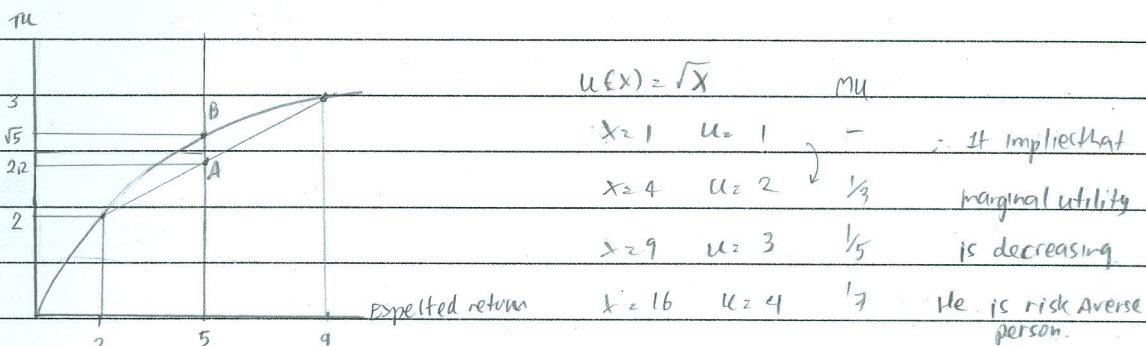 TU
3
B
√5
2,2
A
2
5
9
Expected return
u(x) = √x    MU
x=1    u= 1    –
x=4    u= 2    1/3
x=9    u= 3    1/5
x=16    u=4    1/7
∴ It implies that
marginal utility
is decreasing.
He is risk Averse
person.